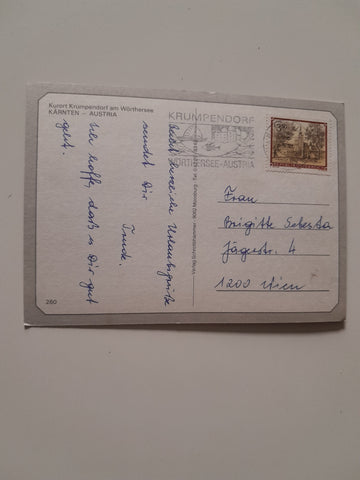 Kurort Krumpendorf am Wörthersee
KÄRNTEN – AUSTRIA
Recht herzliche Urlaubsgrüße
sendet Dir
Trude.
Ich hoffe, daß es Dir gut
geht.
260
KRUMPENDORF
WÖRTHERSEE-AUSTRIA
Frau
Brigitte Sebesta
Jägerstr. 4
1200 Wien